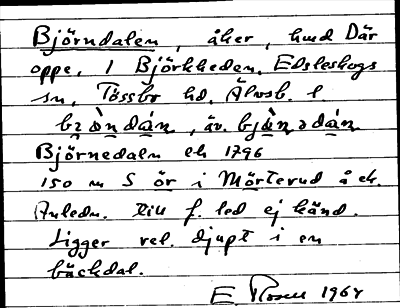 Björndalen, åker, hmd Där
oppe, 1 Björkheden, Edsleskogs
sn, Tössbo hd, Älvsb. l
bjö̀ndán, äv. bjö̀nədán
Björnedaln ek 1796
150 m S ör i Mörterud å ek.
Anledn. till f. led ej känd.
Ligger rel. djupt i en
bäckdal.
E. 1964